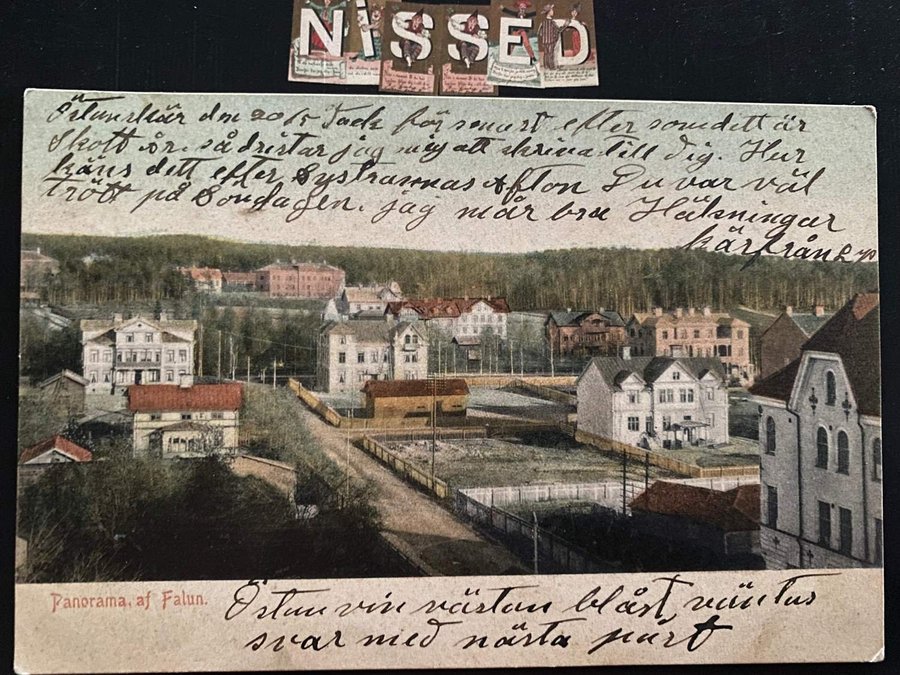 NISSED
Östunskär den 20/5 Tack för senast efter som dett är
Skott År. så dristar jag mig att skriva till dig. Hur
käns dett efter Systrarnas Afton Du var väl
trött på Söndagen. jag mår bra Hälsningar
kär från
Panorama, af Falun.
Östan vin västan blåst väntas
svar med nästa påst